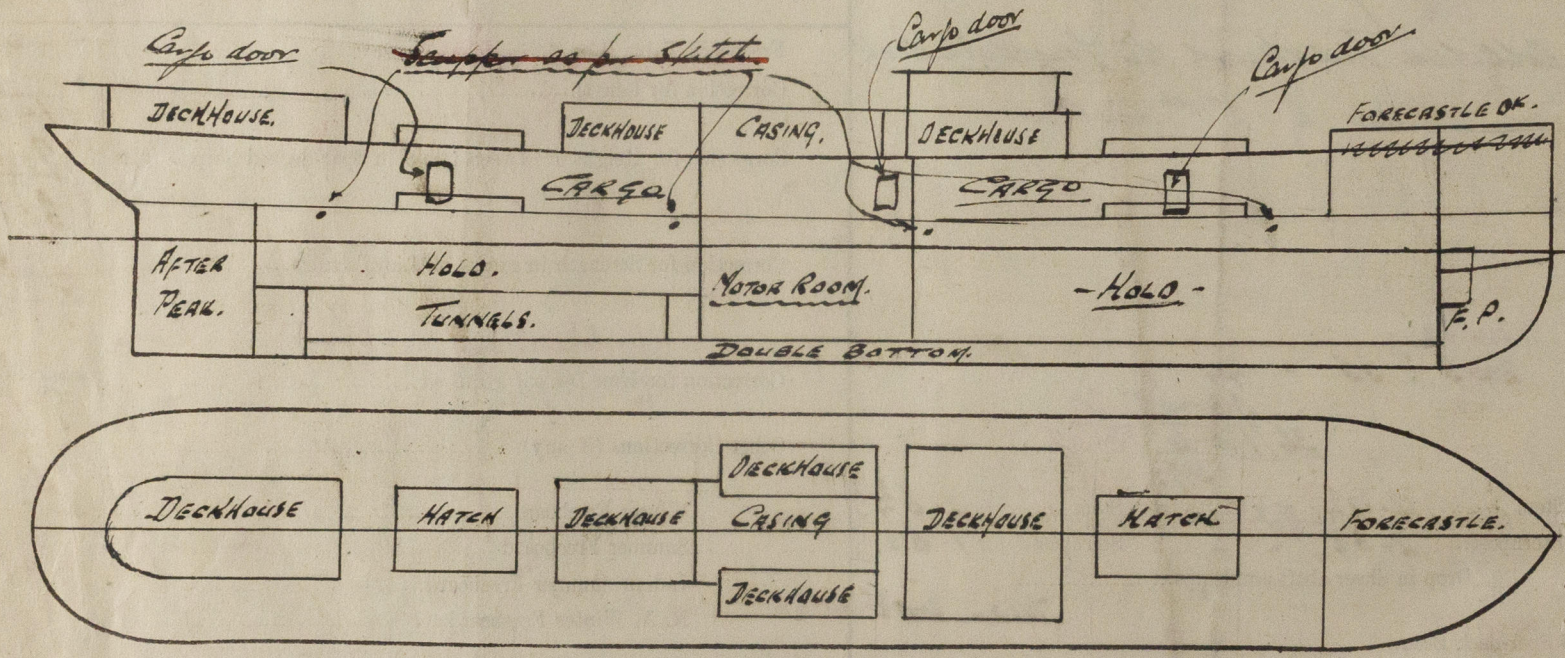 Cargo door
Scupper as pr Sketch.
Cargo door
Cargo door.
DECKHOUSE.
DECKHOUSE
CASING.
DECKHOUSE
FORECASTLE DK.
CARGO
CARGO
AFTER
PEAK.
HOLD.
TUNNELS.
MOTOR ROOM.
- HOLD -
F.P.
DOUBLE BOTTOM.
DECKHOUSE
DECKHOUSE
HATCH
DECKHOUSE
CASING
DECKHOUSE
HATCH
FORECASTLE.
DECKHOUSE